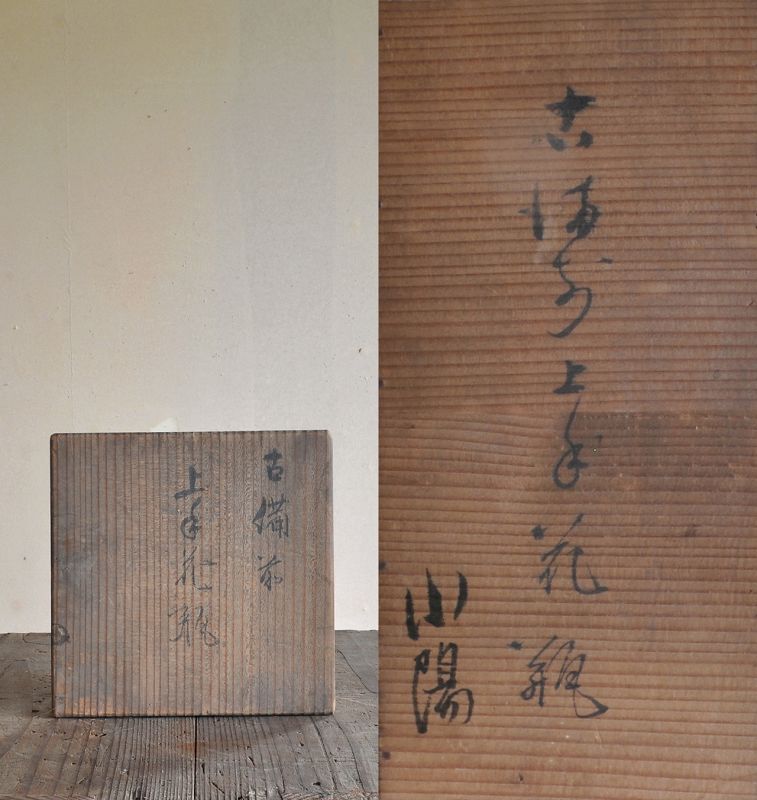 古備前
上手花瓶
古備前上手花瓶
小陽